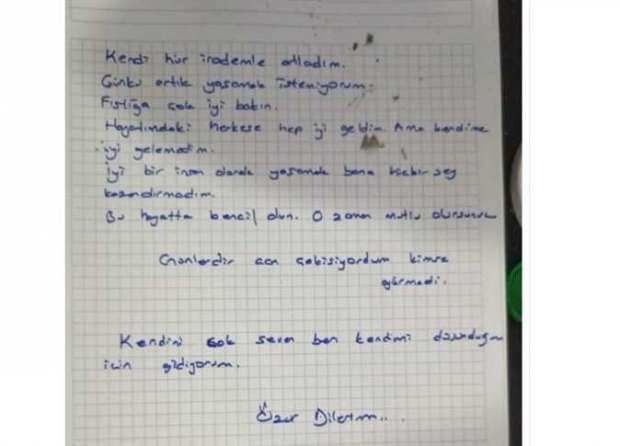 Kendi hür irademle atladım.
Çünkü artık yaşamak istemiyorum.
Fıstığa çok iyi bakın.
Hayatımdaki herkese hep iyi geldim Ama kendime
iyi gelemedim.
İyi bir insan olarak yaşamak bana hiçbir şey
kazandırmadım.
Bu hayatta bencil olun. O zaman mutlu olursunuz
acı çekiyordum kimse
görmedi.
Kendini çok seven ben kendimi
için gidiyorum.
Özür Dilerim...